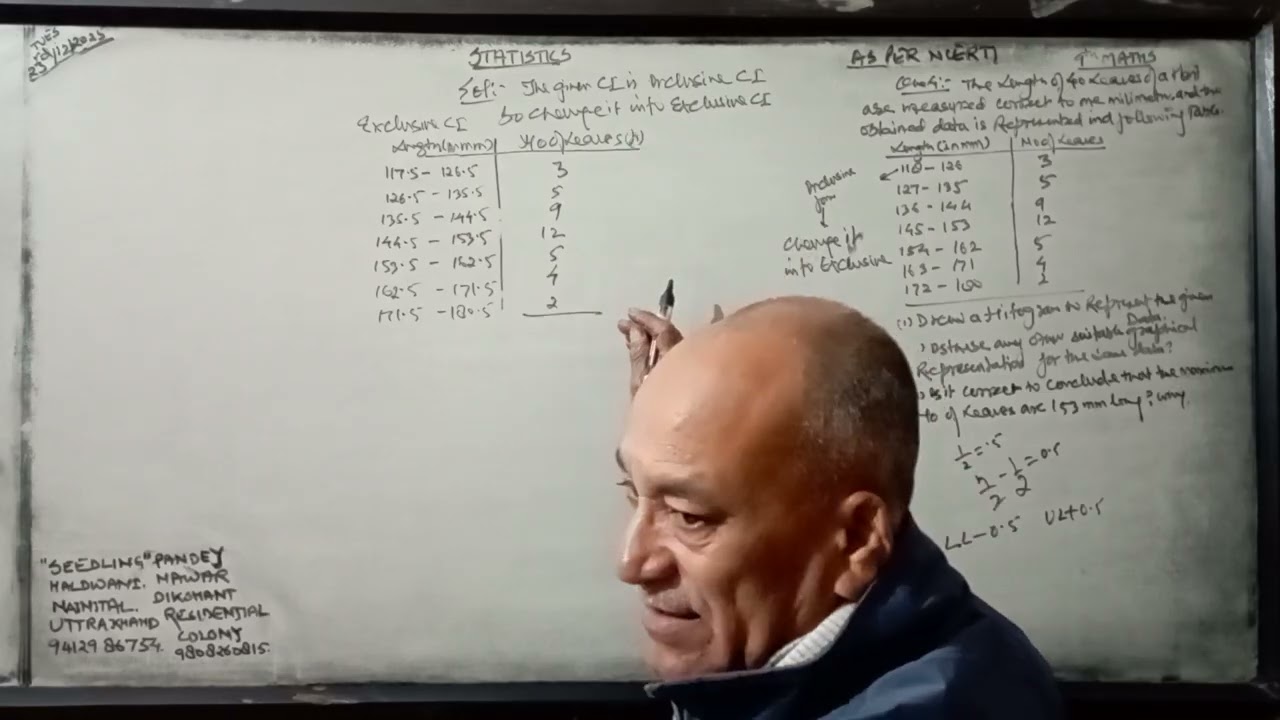 TUES
23rd/12/2025
STATISTICS
AS PER NCERT
9th MATHS
Sol:- The given CI is Inclusive CI
so change it into Exclusive CI
Exclusive CI
Length(in mm) No of Leaves(f)
117.5 - 126.5 3
126.5 - 135.5 5
135.5 - 144.5 9
144.5 - 153.5 12
153.5 - 162.5 5
162.5 - 171.5 4
171.5 - 180.5 2
The Length of 40 Leaves of a
are measured correct to one milimetre, and the
obtained data is Represented in following Table.
Length(in mm) No of Leaves
118 - 126 3
127 - 135 5
136 - 144 9
145 - 153 12
154 - 162 5
163 - 171 4
172 - 180 2
Inclusive
form
Change it
into Exclusive
(i) Draw a Histogram to Represent the given
Data.
any other suitable graphical
Representation for the same data?
) Is it correct to conclude that the maximum
no of Leaves are 153 mm long? why
1/2 = .5
1/2 = 0.5
LL - 0.5 UL + 0.5
"SEEDLING" PANDEY
HALDWANI. NAWAR
NAINITAL. DIKSHANT
UTTRAKHAND RESIDENTIAL
COLONY
94129 86754. 9808260815.